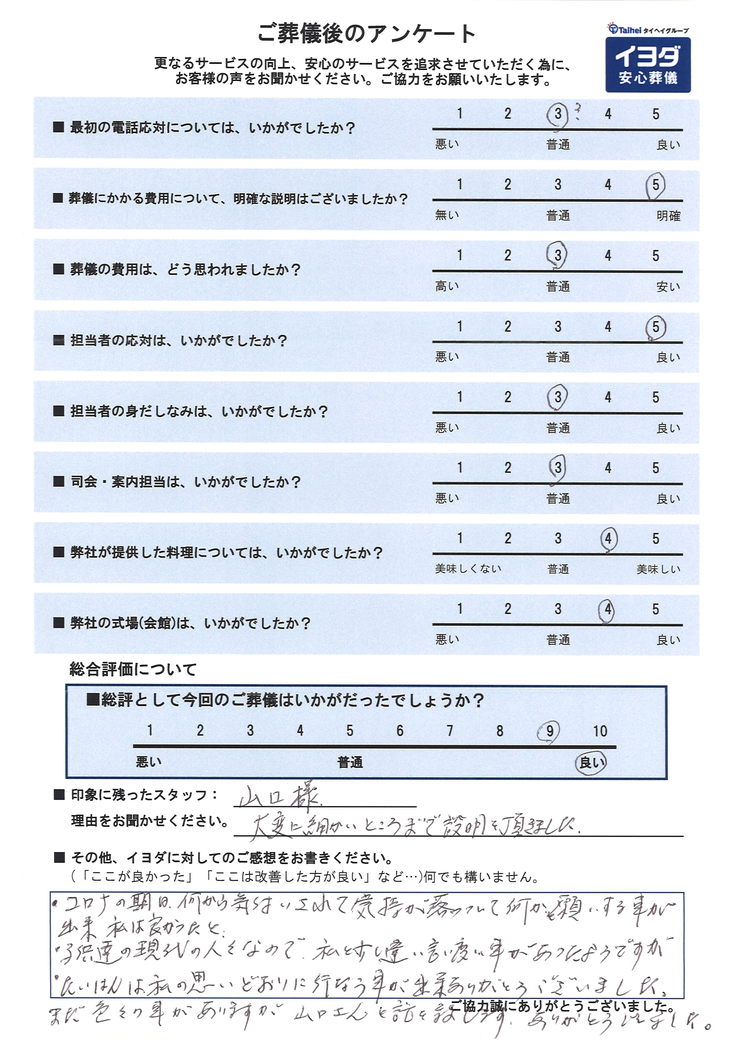 ご葬儀後のアンケート
Taihei タイヘイグループ
イヨダ
安心葬儀
更なるサービスの向上、安心のサービスを追求させていただく為に、
お客様の声をお聞かせください。ご協力をお願いいたします。
■ 最初の電話応対については、いかがでしたか？
1 2 3 ? 4 5
悪い 普通 良い
■ 葬儀にかかる費用について、明確な説明はございましたか？
1 2 3 4 5
無い 普通 明確
■ 葬儀の費用は、どう思われましたか？
1 2 3 4 5
高い 普通 安い
■ 担当者の応対は、いかがでしたか？
1 2 3 4 5
悪い 普通 良い
■ 担当者の身だしなみは、いかがでしたか？
1 2 3 4 5
悪い 普通 良い
■ 司会・案内担当は、いかがでしたか？
1 2 3 4 5
悪い 普通 良い
■ 弊社が提供した料理については、いかがでしたか？
1 2 3 4 5
美味しくない 普通 美味しい
■ 弊社の式場(会館)は、いかがでしたか？
1 2 3 4 5
悪い 普通 良い
総合評価について
■総評として今回のご葬儀はいかがだったでしょうか？
1 2 3 4 5 6 7 8 9 10
悪い 普通 良い
■ 印象に残ったスタッフ： 山口様
理由をお聞かせください。 大変に細かいところまで説明を頂きました.
■ その他、イヨダに対してのご感想をお書きください。
(「ここが良かった」「ここは改善した方が良い」など…)何でも構いません。
・コロナの期 何から 気持が落ついて何かも願いする事が
出来 私は良かったと.
・子供達の現代の人々なので. 私と少し違い言い度い事があったようですが
・たいはんは私の思いどおりに行なう事が出来ありがとうございました。
まだ色々の事がありますが 山口さんと話を致します. ありがとうございました。
ご協力誠にありがとうございました。